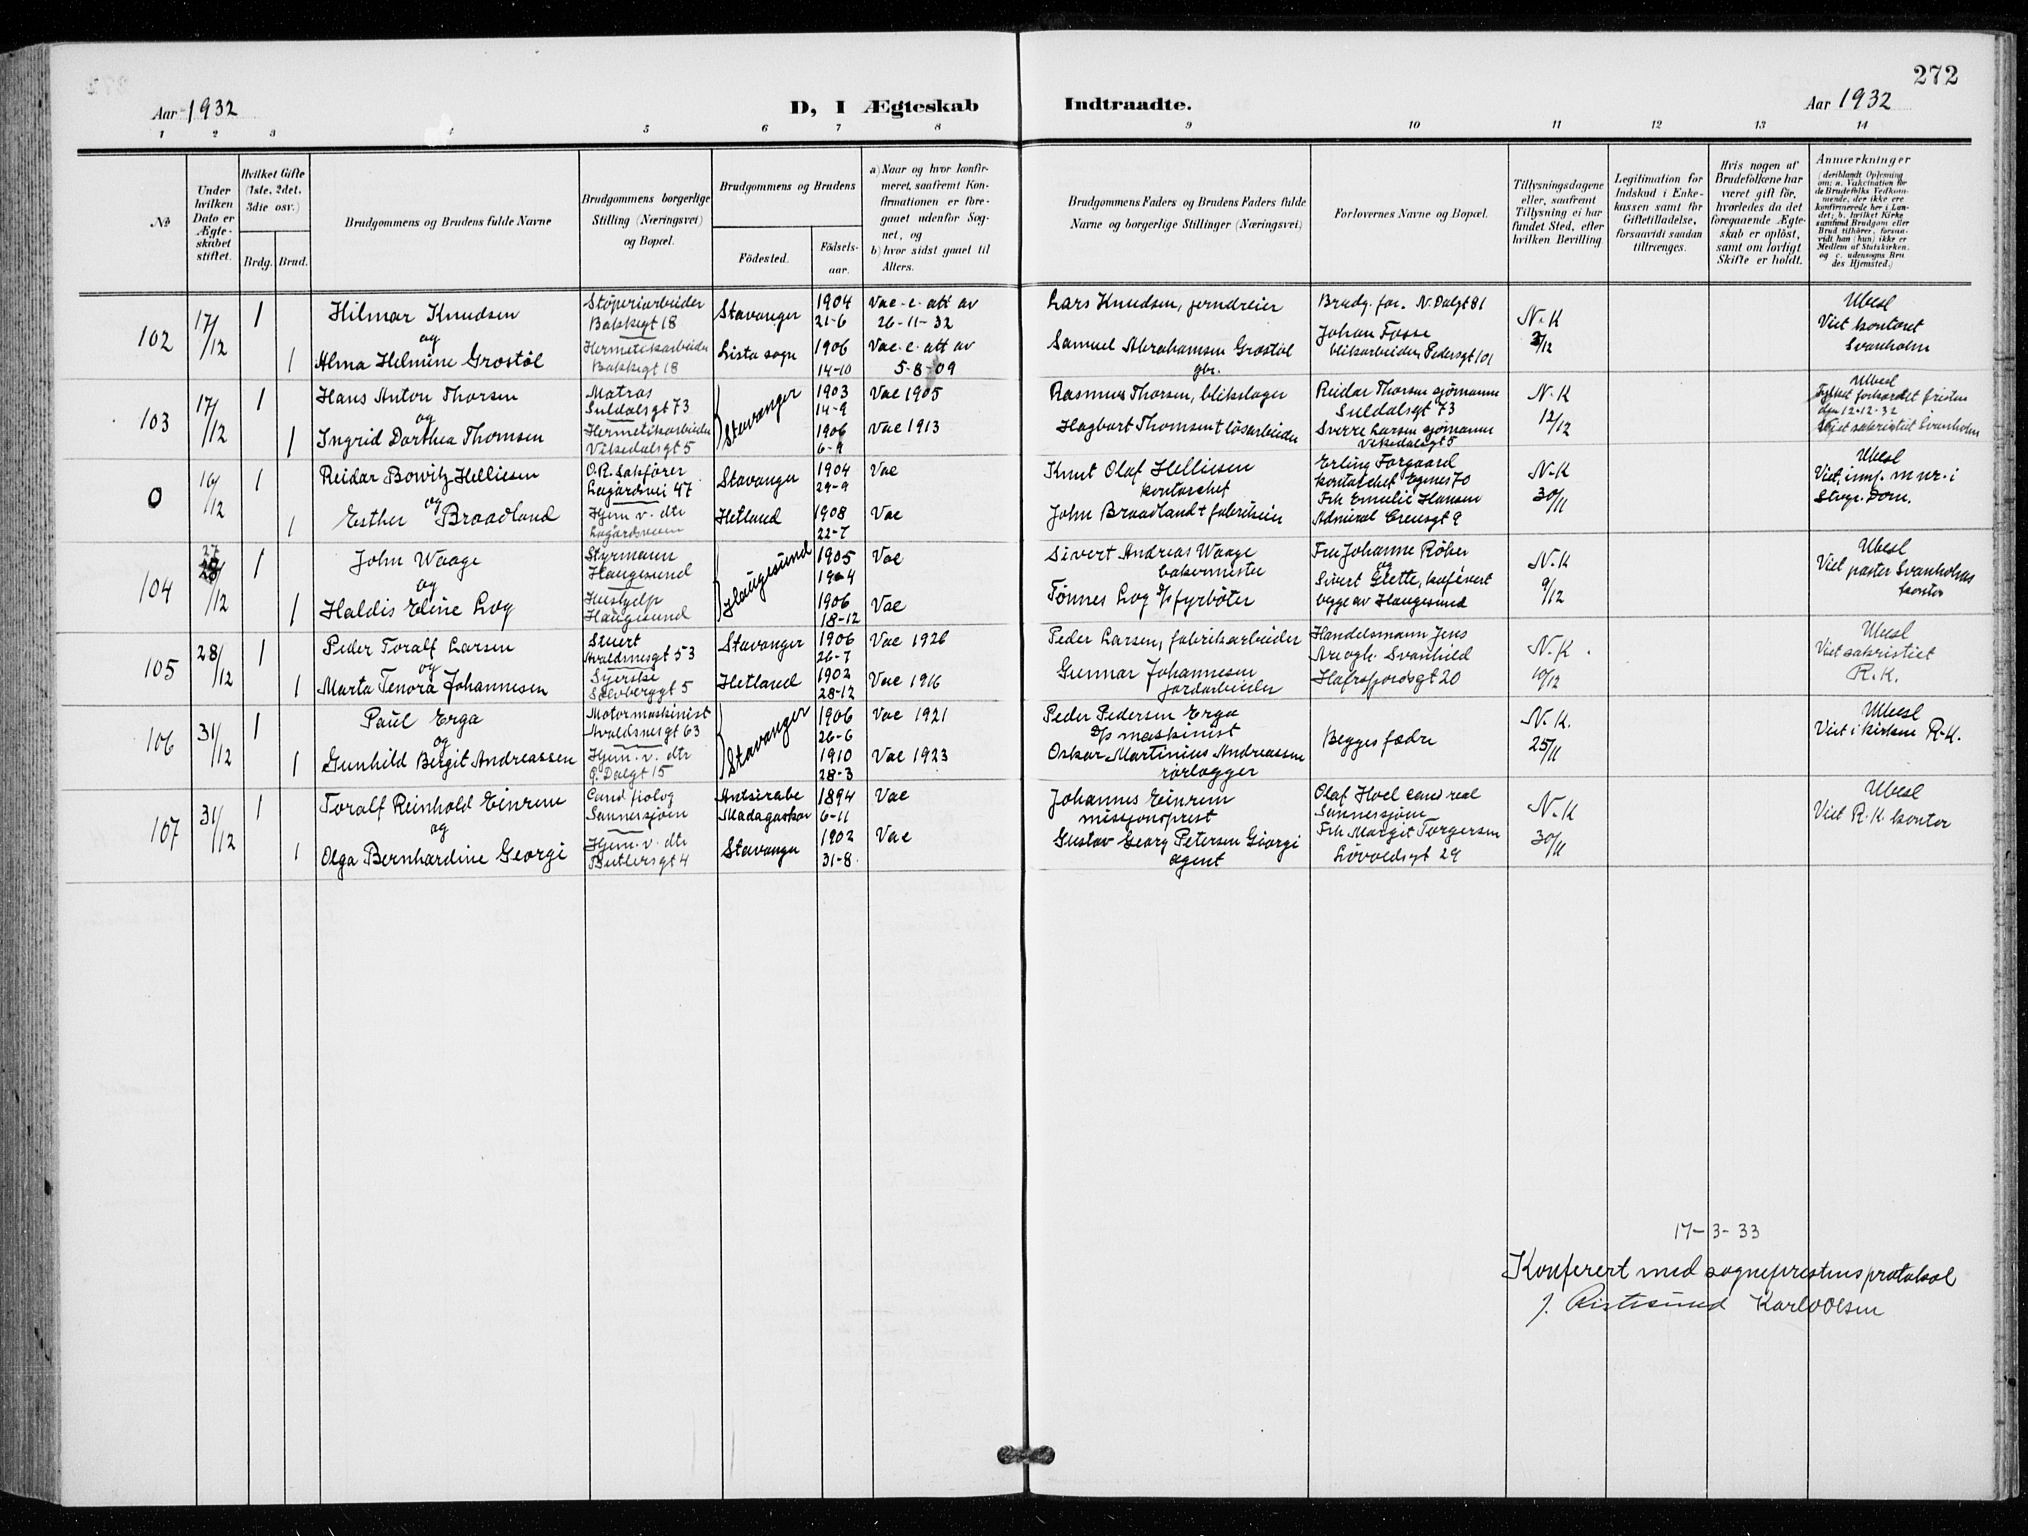 272
Aar 1932
D, I Ægteskab Indtraadte.
Aar 1932
1 2 3 4 5 6 7 8 9 10 11 12 13 14
No
Under hvilken Dato er Ægteskabet stiftet.
Hvilket Gifte (1ste, 2det, 3die osv.)
Brdg. Brud.
Brudgommens og Brudens fulde Navne
Brudgommens borgerlige Stilling (Næringsvei) og Bopæl.
Brudgommens og Brudens
Födested. Födselsaar.
a) Naar og hvor konfirmeret, saafremt Konfirmationen er foregaaet udenfor Sognet, og
b) hvor sidst gaaet til Alters.
Brudgommens Faders og Brudens Faders fulde Navne og borgerlige Stillinger (Næringsvei)
Forlovernes Navne og Bopæl.
Tillysningsdagene eller, saafremt Tillysning ei har fundet Sted, efter hvilken Bevilling
Legitimation for Indskud i Enkekassen samt for Giftetilladelse, forsaavidt saadan tiltrænges.
Hvis nogen af Brudefolkene har været gift för, hvorledes da det foregaaende Ægteskab er oplöst, samt om lovligt Skifte er holdt.
Anmærkninger (deriblandt Oplysning om: a. Vakcination for de Brudefolks Vedkommende, der ikke ere konfirmerede her i Landet; b. hvilket Kirkesamfund Brudgom eller Brud tilhörer, forsaavidt han (hun) ikke er Medlem af Statskirken, og c. udensogns Brudes Hjemsted.)
102 17/12 1 Hilmar Knudsen Støperiarbeider Bakkegt 18 Stavanger 1904 21-6 Vac. e. att av 26-11-32 Lars Knudsen, jerndreier Brudg. far. N. Dalgt 81 N.K. Ubesl
og
1 Alma Helmine Grostøl Hermetikarbeider Bakkegt 18 Lista sogn 1906 14-10 Vac. e. att av 5-8-09 Samuel Abrahamsen Grostøl gbr. Johan Fosse blikarbeider, Pedersgt 101 3/12 Viet kontoret Svanholm
103 17/12 1 Hans Anton Thorsen Matros Suldalsgt 73 Stavanger 1903 14-9 Vac 1905 Rasmus Thorsen, blikslager Reidar Thorsen sjømann Suldalsgt 73 N.K Ubesl
og
1 Ingrid Dorthea Thomsen Hermetikarbeider Vikedalsgt 5 1906 6-9 Vac 1913 Hagbart Thomsen løsarbeider Sverre Larsen sjømann Vikedalsgt 5 12/12 Fylket forkortet fristen den 12-12-32 Viet sakristiet Svanholm
0 16/12 1 Reidar Bowitz Helliesen O.R. Sakfører Lagårdsvei 47 Stavanger 1904 29-9 Vac Knut Olaf Helliesen kontorchef Erling Forgaard kontorchef Egnes 70 N.K Ubesl
og
1 Esther Braadland Hjem. v. dtr Lagårdsveien Hetland 1908 22-7 Vac John Braadland + fabrikeier Frk Emelie Hansen Admiral Cruisgt 9 30/11 Viet, innf. m nr. i Stvgr. Dom.
104 27/12 1 John Waage Styrmann Haugesund Haugesund 1905 19-4 Vac Sivert Andreas Waage bakermester Fru Johanne Røker N.K Ubesl
og
1 Haldis Eline Log Hushjelp Haugesund 1906 18-12 Vac Tønnes Log fyrbøter og Sivert Glette, kafévert begge av Haugesund 9/12 Viet pastor Svanholms kontor
105 28/12 1 Peder Toralf Larsen Stuert Avaldsnesgt 53 Stavanger 1906 26-7 Vac 1926 Peder Larsen, fabrikarbeider Handelsmann Jens N.K. Ubesl
og
1 Marta Tenora Johannesen Syerske Sølvberggt 5 Hetland 1902 28-12 Vac 1916 Gunnar Johannesen jordarbeider Svanhild Hafrsfjordsgt 20 10/12 Viet sakristiet R.K.
106 31/12 1 Paul Erga Motormaskinist Avaldsnesgt 63 Stavanger 1906 26-6 Vac 1921 Peder Pedersen Erga maskinist Begges fædre N.K. Ubesl
og
1 Gunhild Bergit Andreassen Hjem. v. dtr Ø. Dalgt 15 1910 28-3 Vac 1923 Oskar Martinius Andreassen rørlegger 25/11 Viet i kirken R.K.
107 31/12 1 Toralf Reinhold Einrem Cand filolog Sannessjøen Antsirabe Madagaskar 1894 6-11 Vac Johannes Einrem missjonsprest Olaf Hoel cand real Sannessjøen N.K Ubesl
og
1 Olga Bernhardine Georgi Hjem. v. dtr Butlersgt 4 Stavanger 1902 31-8 Vac Gustav Georg Petersen Giorgi agent Frk Margit Torgersen Løvoldsgt 29 30/11 Viet R.K. kontor
17-3-33
Konferert med sogneprestens protokol
J. Karl O Olsen